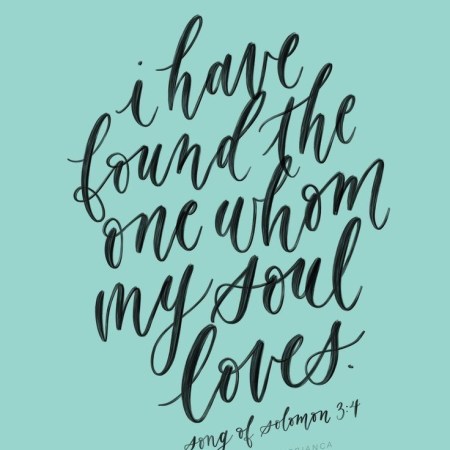 i have
found the
one whom
my soul
loves.
song of solomon 3:4